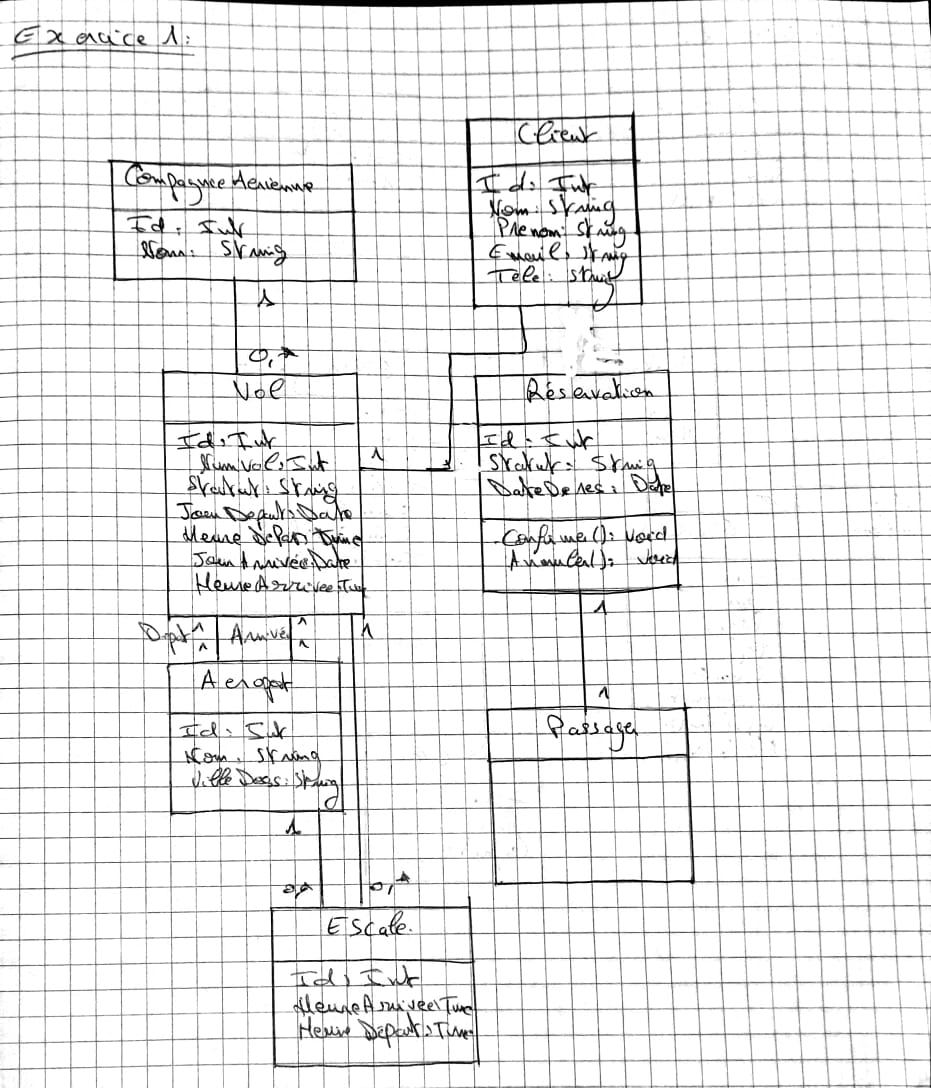 Exercice 1:
Client
Id: Int
Nom: String
Prenom: String
Email: String
Tele: String
Compagnee Aerienne
Id: Int
Nom: String
1
0,*
Vol
Id: Int
NumVol: Int
Statut: String
Jour Depart: Date
Heure Depart: Time
Jour Arrivée: Date
Heure Arrivee: Time
1
Réservation
Id: Int
Statut: String
DateDeres: Date
Confirmer(): Void
Annuler(): Void
1
1
Passager
1
Arrivé
1
1
1
1
Aeroport
Id: Int
Nom: String
1
0,*
0,*
Escale
Id: Int
HeureArrivee: Time
Heure Départ: Time